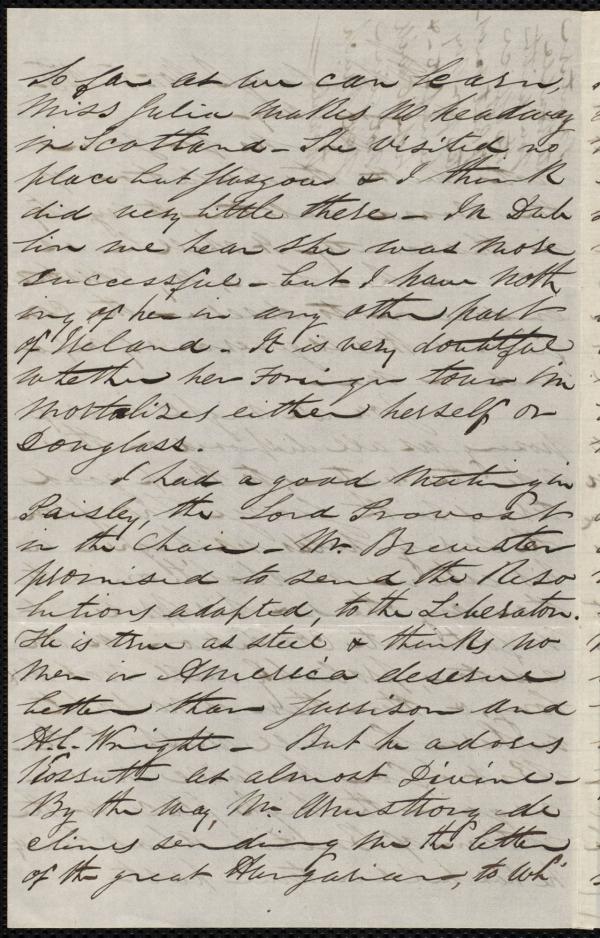 So far as we can learn,
Miss Julia makes no headway
in Scotland - She visited no
place but Glasgow & I think
did very little there - In Dub
lin we hear she was more
successful - but I have noth
ing of her in any other part
of Ireland - It is very doubtful
whether her Foreign tour im
mortalizes either herself or
Douglass.
I had a good meeting in
Paisley, the Lord Provost
in the Chair - Mr. Brewster
promised to send the Reso
lutions adopted, to the Liberator.
He is true as steel & thinks no
men in America deserve
better than Garrison and
H.C. Wright - But he adores
Kossuth as almost Divine -
By the way, Mr. Armstrong de
clines sending me the letter
of the great Hungarian, to wh'